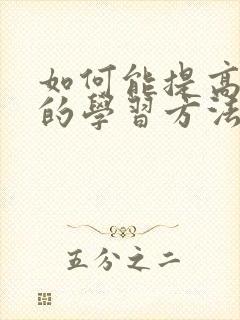 如何能提高
的學習方法
五分之二